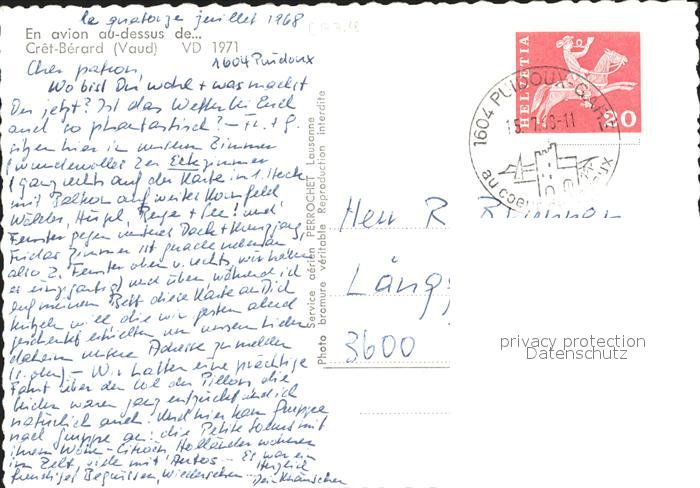 le quatorze juillet 1968
En avion au-dessus de...
Crêt-Bérard (Vaud) VD 1971
1604 Puidoux
Cher patron,
Wo bist Du wohl + was machst
Du jetzt? Ist das Wetter bei Euch
auch so phantastisch? – Fr. + g.
sitzen hier in unserem Zimmer
(wundervolles 2er Eckzimmer
(ganz rechts auf der Karte im 1. Stock
mit Balkon auf weite Kornfeld
Wälder, Hügel, Berge + See! und
Fenster gegen
Zimmer ist gerade nebenan,
also 2. Fenster oben v. rechts, wir haben
es einzigartig) und über während ich
auf meinem Bett diese Karte an Dich
kritzeln will, die wir gestern abend
geschenkt erhielten um unseren Lieben
daheim unsere Adresse zu melden
(s. oben) – Wir hatten eine prächtige
Fahrt über den Col du Pillon, die
beiden waren ganz entzückt und ich
natürlich auch. Und hier kam Gruppe
nach Gruppe an: die Petite
ihrem Citroën, Holländer wohnen
im Zelt, viele mit Autos – Es war ein
freudiges Begrüssen, Wiedersehen
Herzlich
Dein
Service aérien PERROCHET Lausanne
Photo bromure véritable Reproduction interdite
HELVETIA
20
1604 PUIDOUX-GARE
15.7.68-11
au coeur
Herr R
Läng
3600
privacy protection
Datenschutz